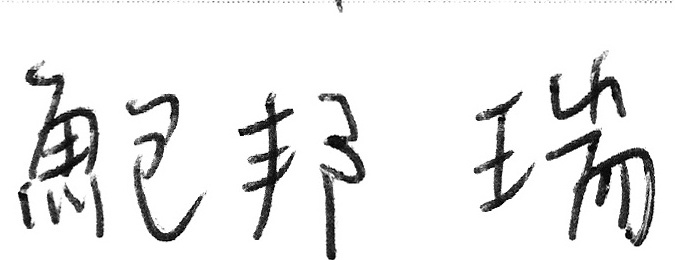 鮑邦瑞